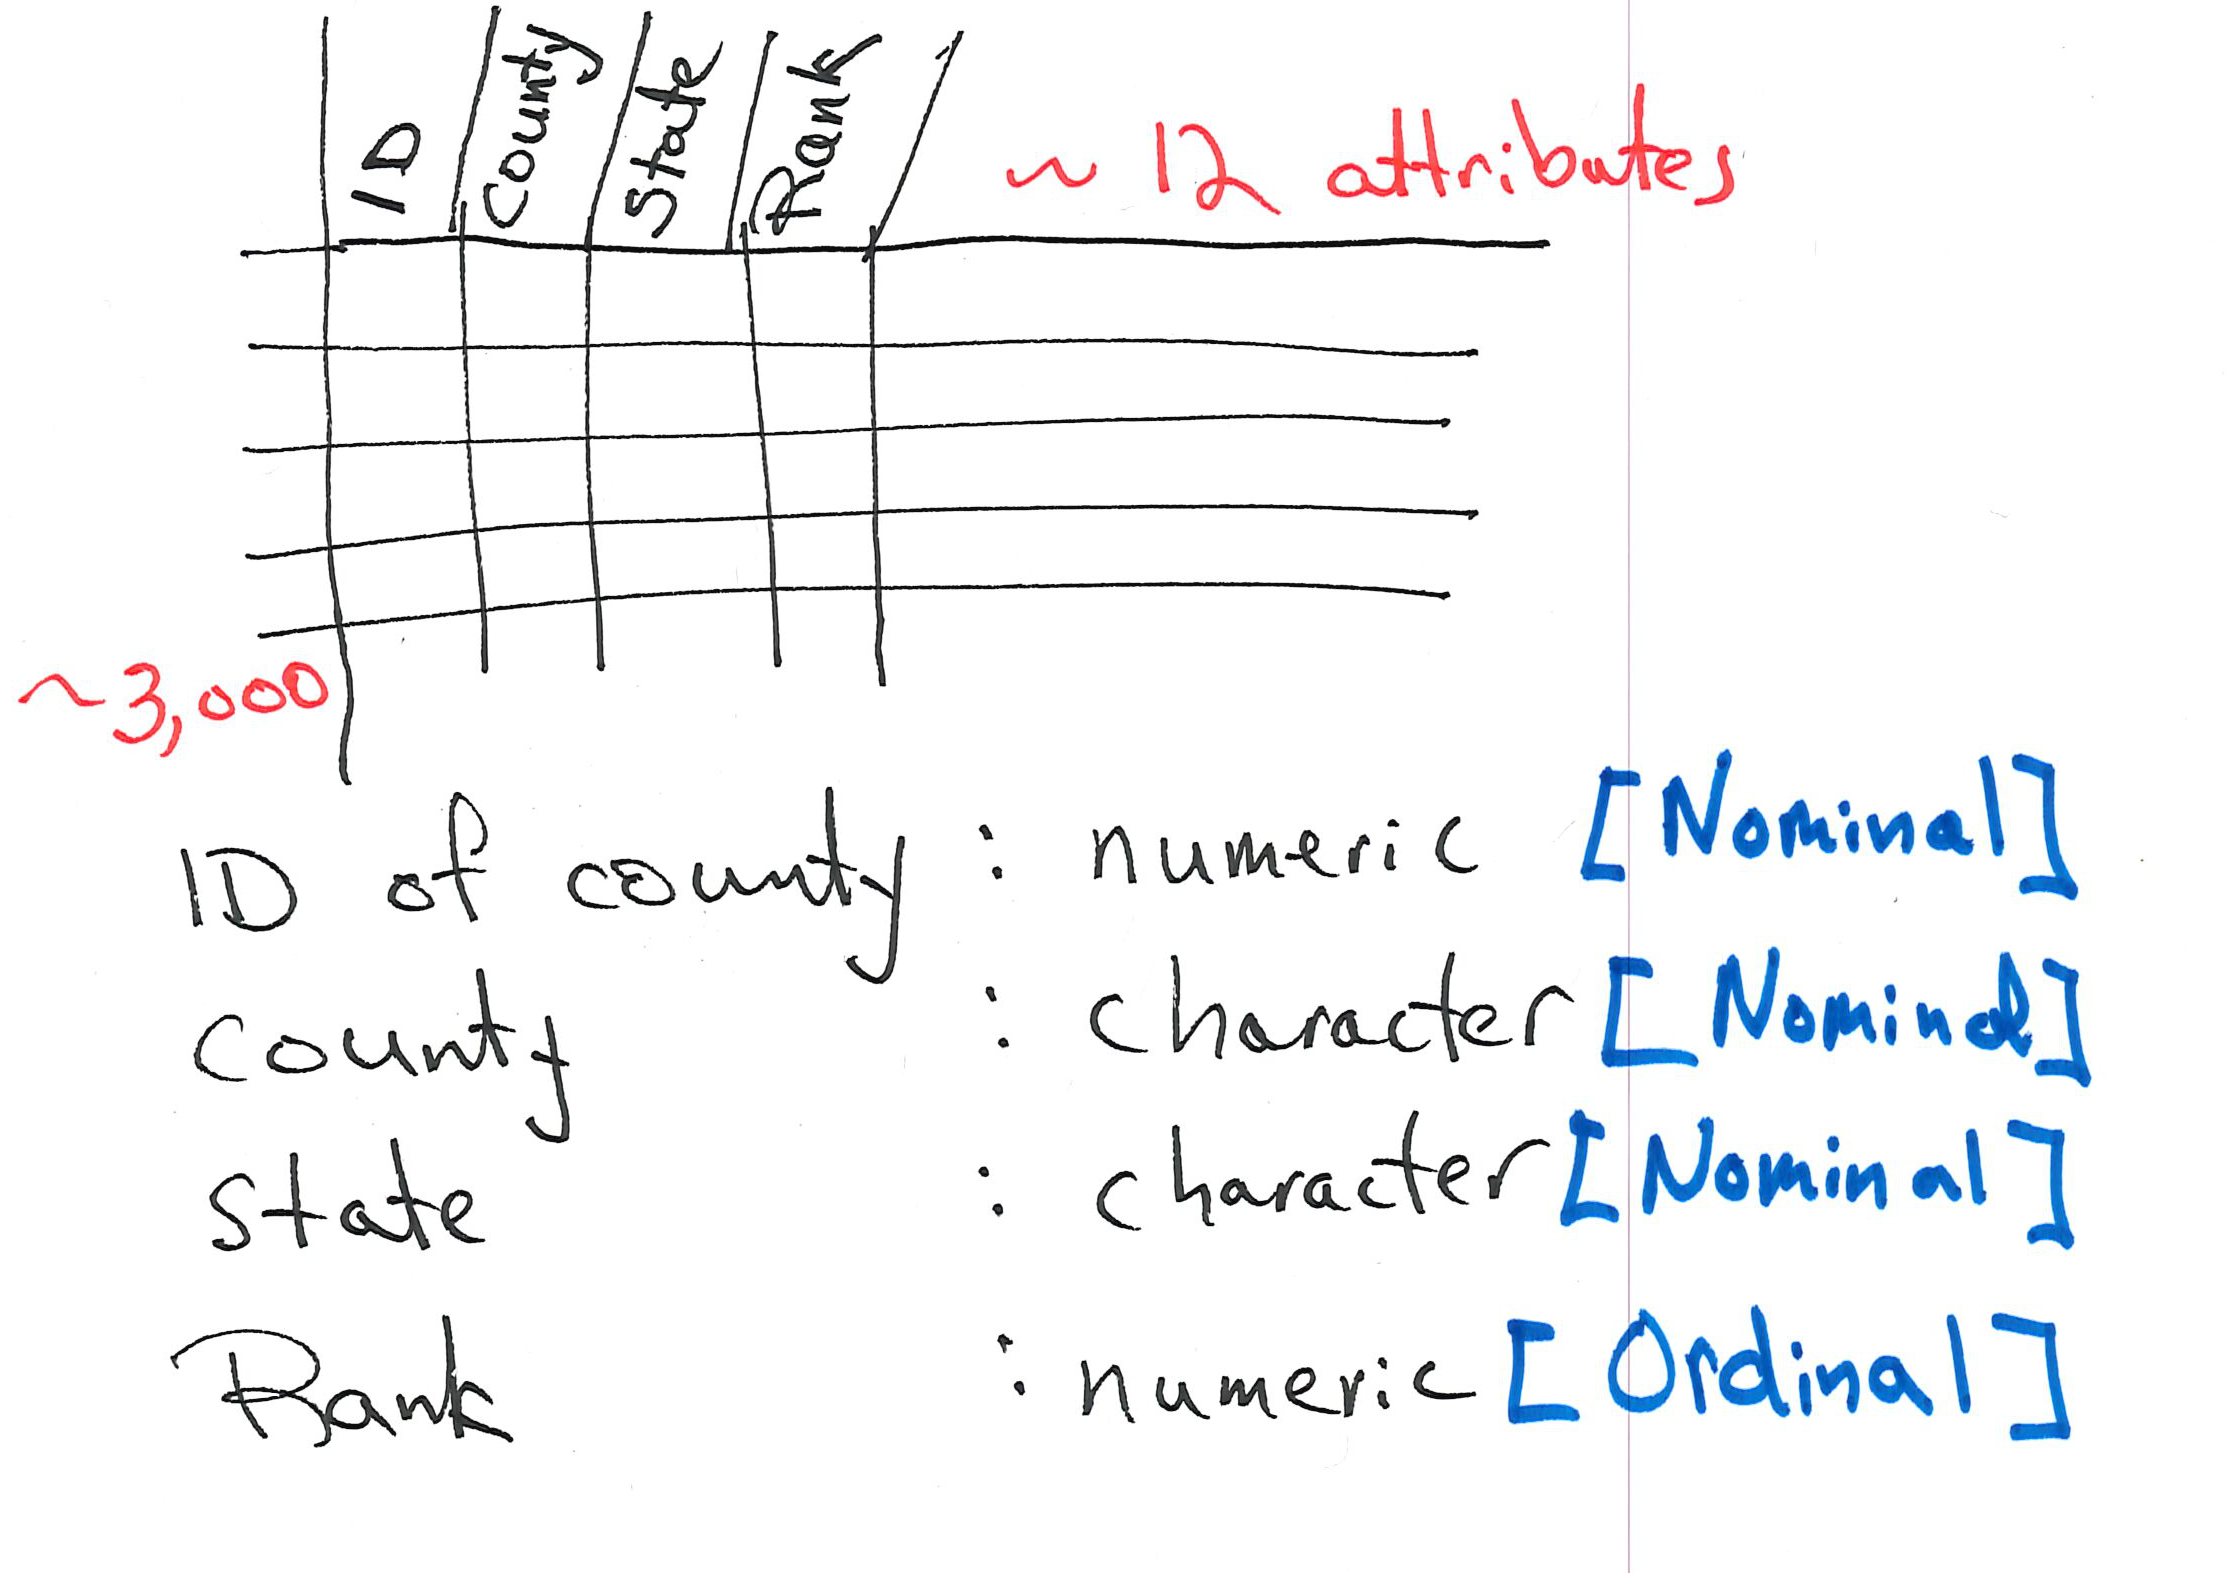 ID County State Rank ~ 12 attributes
~3,000
ID of county : numeric [Nominal]
County : character [Nominal]
State : character [Nominal]
Rank : numeric [Ordinal]